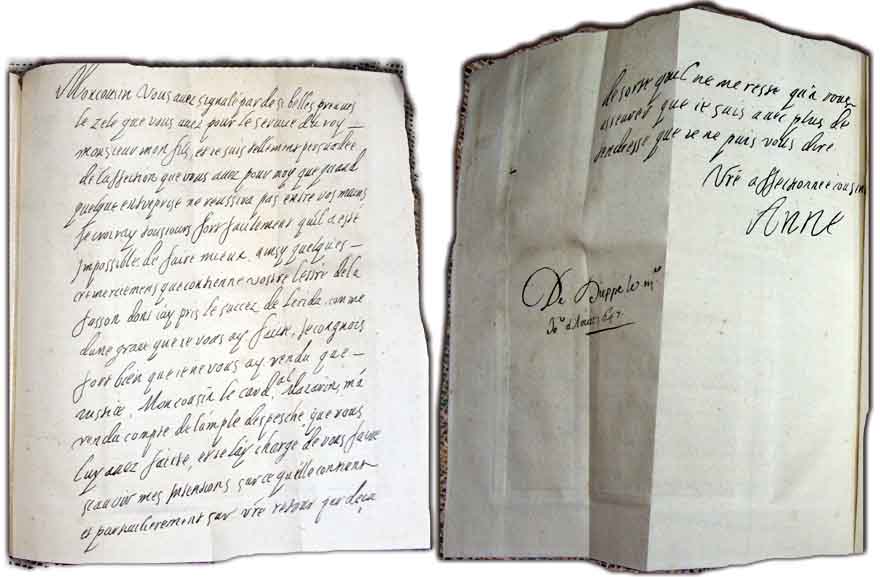 Mon cousin vous avez signalé par de si belles preuves
le zele que vous avez pour le service du roy
monsieur mon fils, et ie suis tellement persuadée
de l'affection que vous avez pour moy que quand
quelque entreprise ne reussira pas entre vos mains
Je croiray tousiours fort facilement qu'il a esté
impossible de faire mieux. ainsy quelques
remerciemens que contienne vostre lettre de la
fasson dont i'ay pris le succez de Lerida, comme
d'une grace que ie vous ay faitte, Je congnois
fort bien que ie ne vous ay rendu que
iustice. Mon cousin le card.al Mazarin, m'a
rendu compte de l'ample despesche, que vous
luy avez faitte, et ie l'ay chargé de vous faire
scavoir mes intentions sur ce qu'elle contient
et particulierement sur vre retour par deça
de sorte qu'il ne me reste qu'a vous
asseurer que ie suis avec plus de
tendresse que ie ne puis vous dire
Vre affectionnée cousine
Anne
De Dieppe le